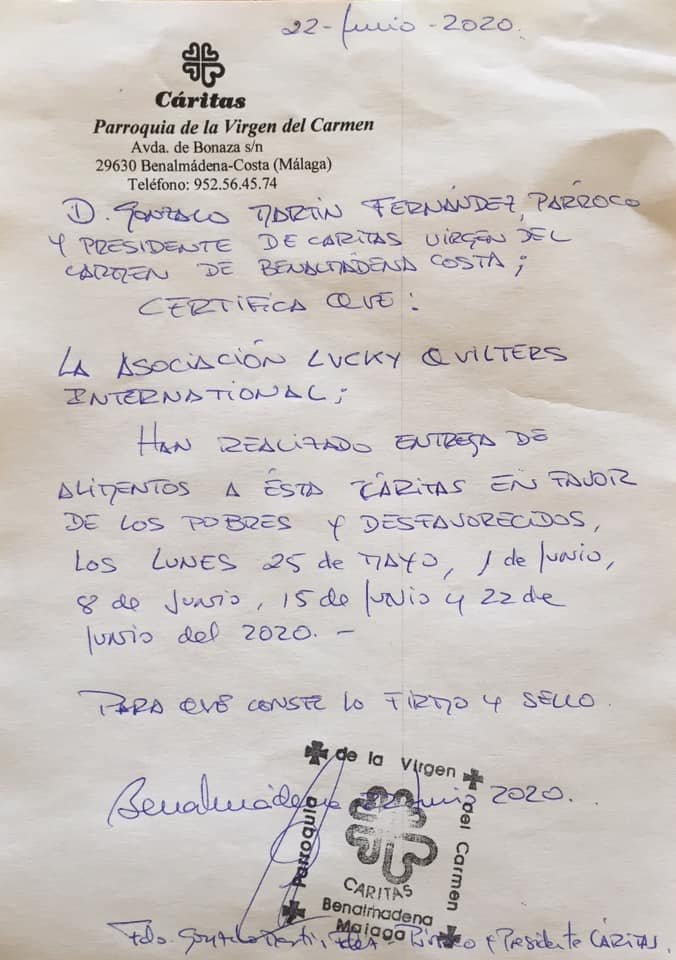 22-Junio-2020.
Cáritas
Parroquia de la Virgen del Carmen
Avda. de Bonaza s/n
29630 Benalmádena-Costa (Málaga)
Teléfono: 952.56.45.74
D. GONZALO MARTÍN FERNÁNDEZ, PÁRROCO
Y PRESIDENTE DE CARITAS VIRGEN DEL
CARMEN DE BENALMÁDENA COSTA;
CERTIFICA QUE:
LA ASOCIACIÓN LUCKY QUILTERS
INTERNATIONAL;
HAN REALIZADO ENTREGA DE
ALIMENTOS A ÉSTA CÁRITAS EN FAVOR
DE LOS POBRES Y DESFAVORECIDOS,
LOS LUNES 25 de MAYO, 1 de Junio,
8 de Junio, 15 de Junio y 22 de
Junio del 2020.-
PARA QUE CONSTE LO FIRMO Y SELLO.
Benalmádena 22 Junio 2020.
Parroquia de la Virgen del Carmen
CARITAS
Benalmadena
Malaga
Fdo. Gonzalo Martín - Párroco y Presidente CÁRITAS.